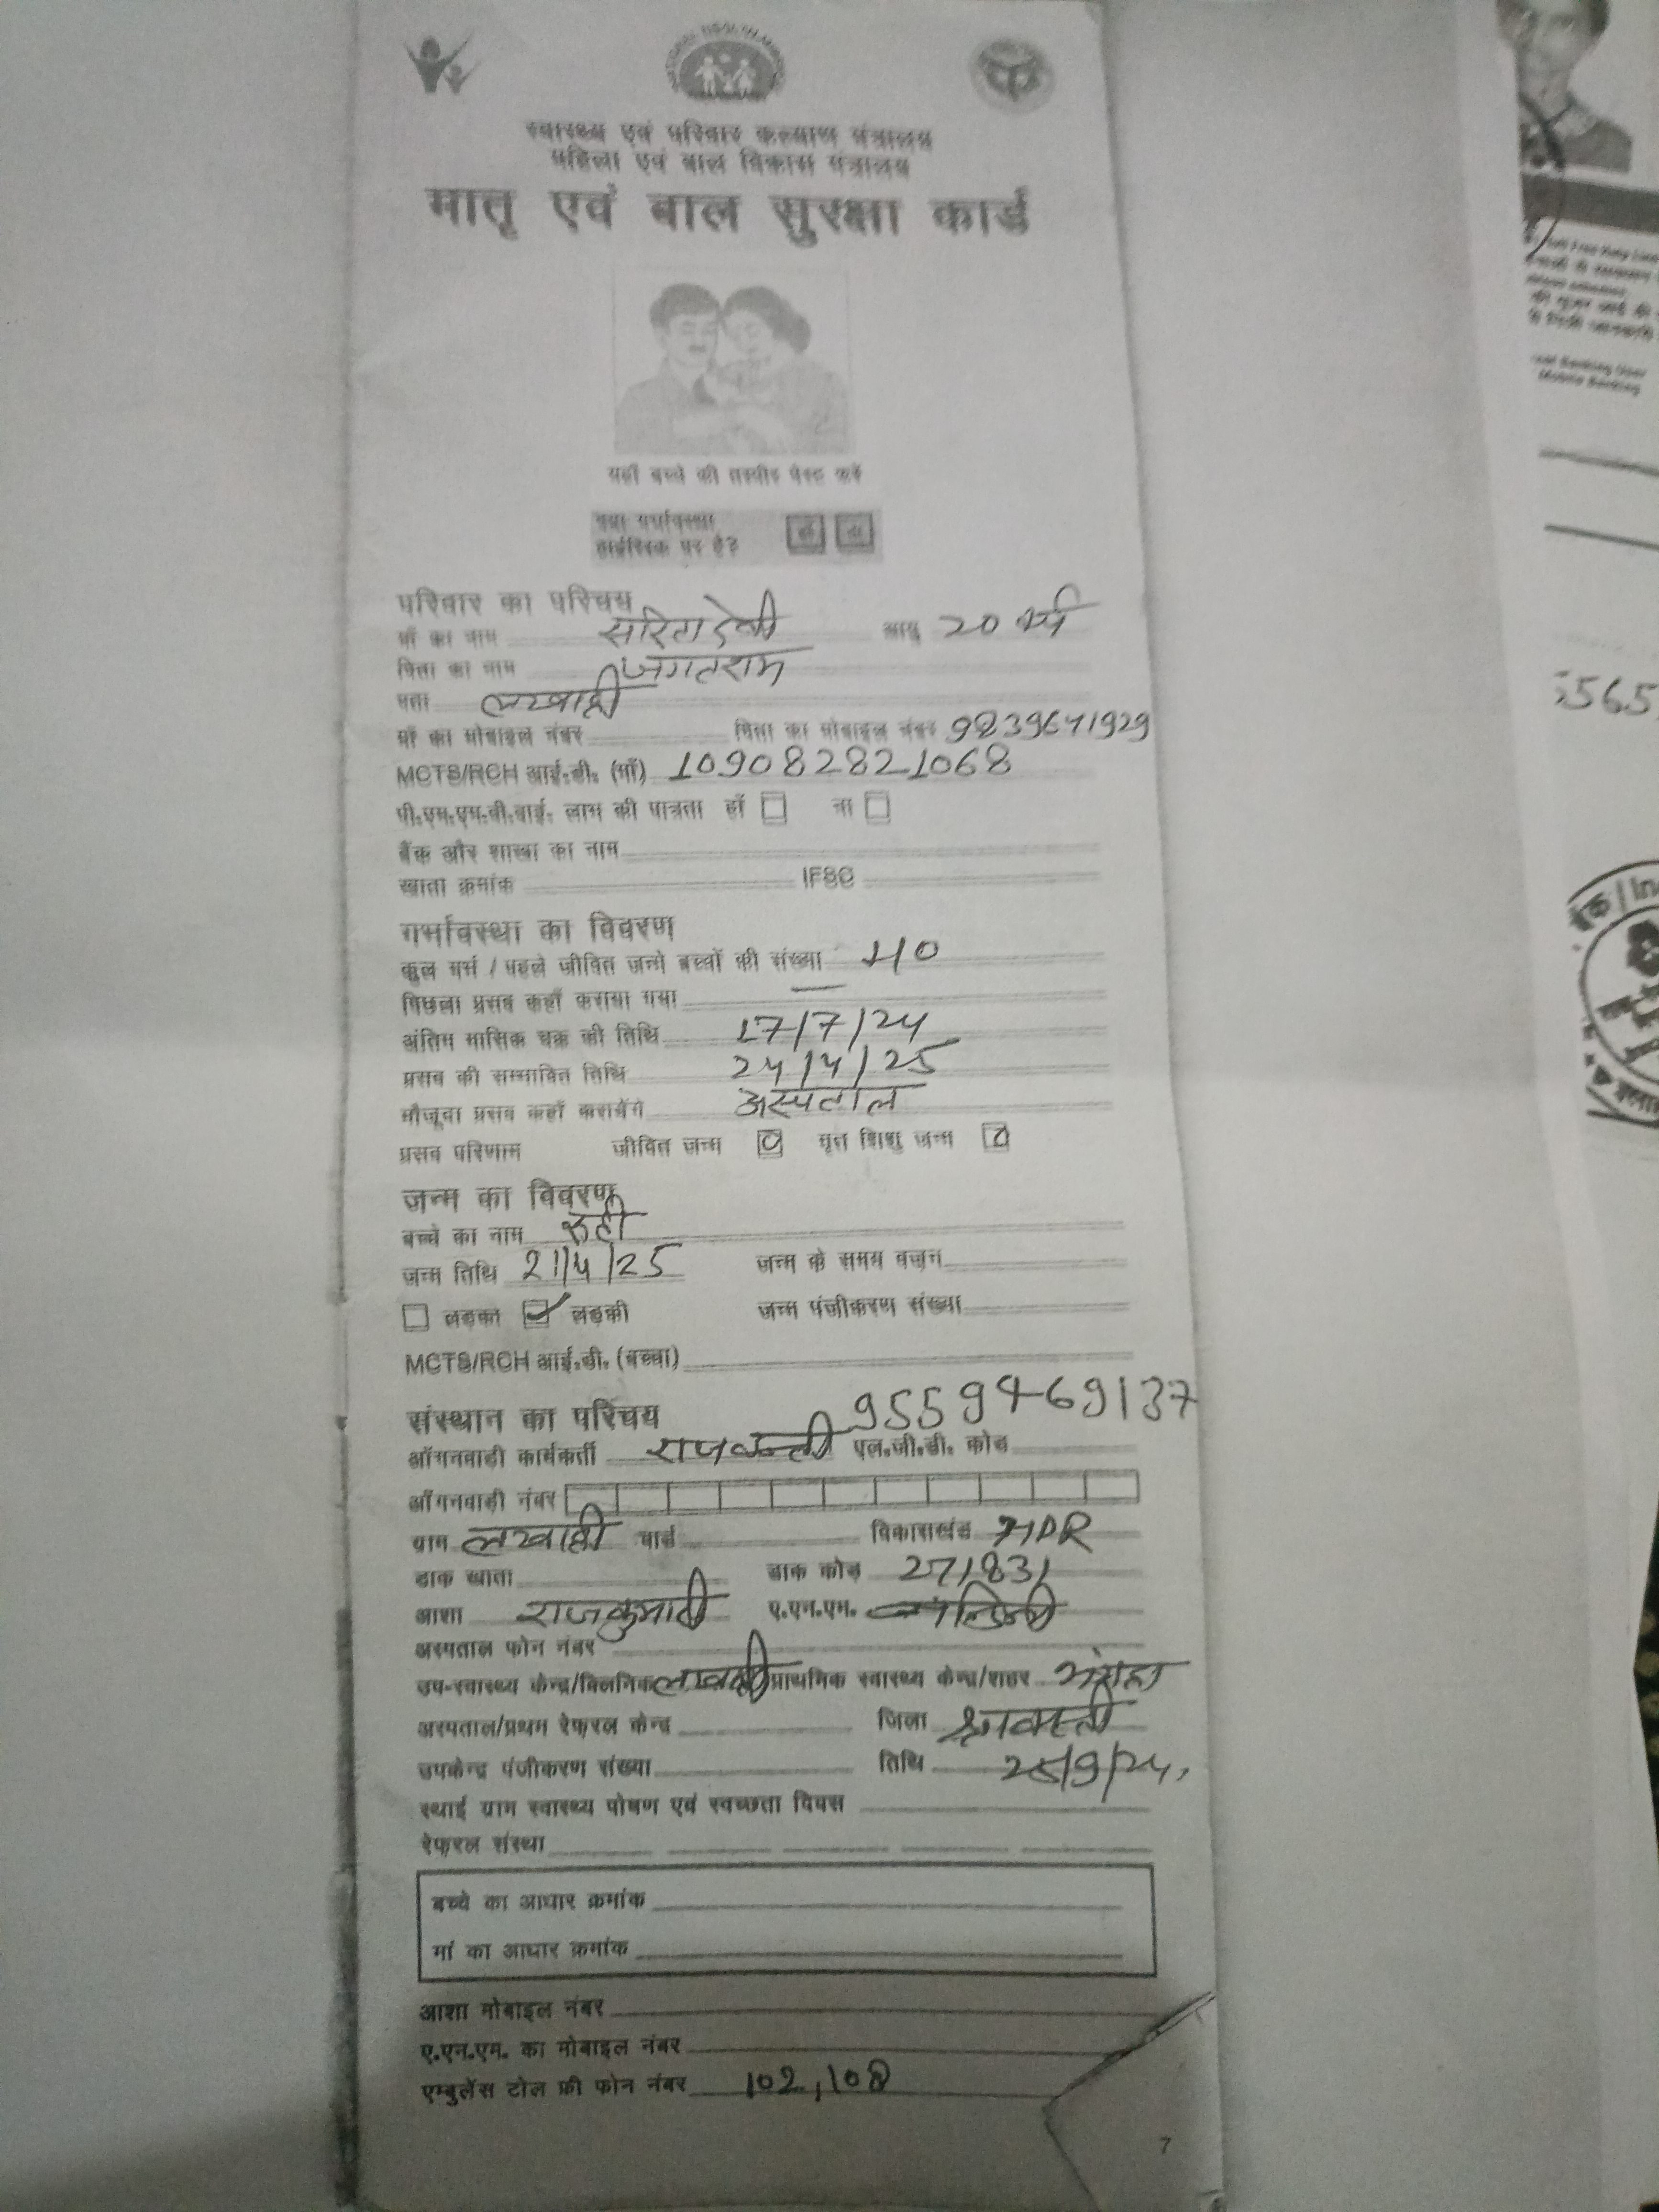 NATIONAL HEALTH MISSION
स्वास्थ्य एवं परिवार कल्याण मंत्रालय
महिला एवं बाल विकास मंत्रालय
मातृ एवं बाल सुरक्षा कार्ड
यहाँ बच्चे की तस्वीर पेस्ट करें
क्या गर्भावस्था
हाईरिस्क पर है?
परिवार का परिचय
माँ का नाम सरिता देवी आयु 20 वर्ष
पिता का नाम जगतराम
पता लखाही
माँ का मोबाइल नंबर पिता का मोबाइल नंबर 9839641929
MCTS/RCH आई.डी. (माँ) 109082821068
पी.एम.एम.वी.वाई. लाभ की पात्रता हाँ ना
बैंक और शाखा का नाम
खाता क्रमांक IFSC
गर्भावस्था का विवरण
कुल गर्भ / पहले जीवित जन्मे बच्चों की संख्या
पिछला प्रसव कहाँ कराया गया —
अंतिम मासिक चक्र की तिथि 17/7/24
प्रसव की सम्भावित तिथि 24/4/25
मौजूदा प्रसव कहाँ करायेंगे अस्पताल
प्रसव परिणाम जीवित जन्म मृत शिशु जन्म
जन्म का विवरण
बच्चे का नाम रुही
जन्म तिथि 21/4/25 जन्म के समय वजन
लड़का लड़की जन्म पंजीकरण संख्या
MCTS/RCH आई.डी. (बच्चा)
संस्थान का परिचय 9559469137
आँगनवाड़ी कार्यकर्ती राजवन्ती एल.जी.डी. कोड
आँगनवाड़ी नंबर
ग्राम लखाही वार्ड विकासखंड HDR
डाक खाता डाक कोड 271831
आशा राजकुमारी ए.एन.एम.
अस्पताल फोन नंबर
उप-स्वास्थ्य केन्द्र/क्लिनिक लखाही प्राथमिक स्वास्थ्य केन्द्र/शहर भंगहा
अस्पताल/प्रथम रेफरल केन्द्र जिला श्रावस्ती
उपकेन्द्र पंजीकरण संख्या तिथि 25/9/24,
स्थाई ग्राम स्वास्थ्य पोषण एवं स्वच्छता दिवस
रेफरल संस्था
बच्चे का आधार क्रमांक
मां का आधार क्रमांक
आशा मोबाइल नंबर
ए.एन.एम. का मोबाइल नंबर
एम्बुलेंस टोल फ्री फोन नंबर 102, 108
7
Mobile Banking
565